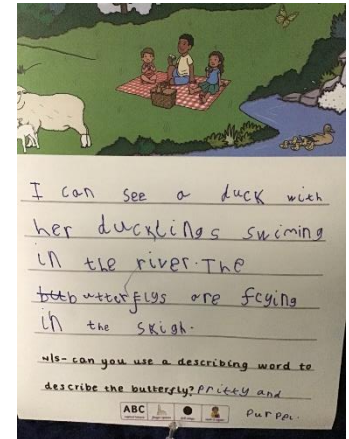 I can see a duck with
her ducklings swiming
in the river. The
butterflys are fcying
in the skigh.
w/s- can you use a describing word to
describe the butterfly? Pritty and
Purper.
ABC